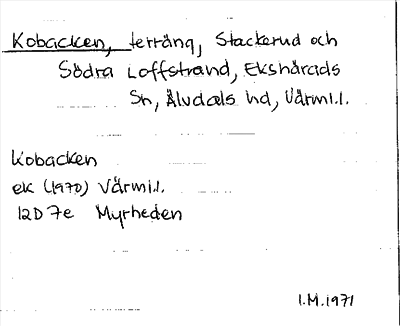 Kobacken, terräng, Stackerud och
Södra Loffstrand, Ekshärads
Sn, Älvdals hd, Värml.l.
Kobacken
ek (1970) Värml.l.
12D 7e Myrheden
I.M. 1971